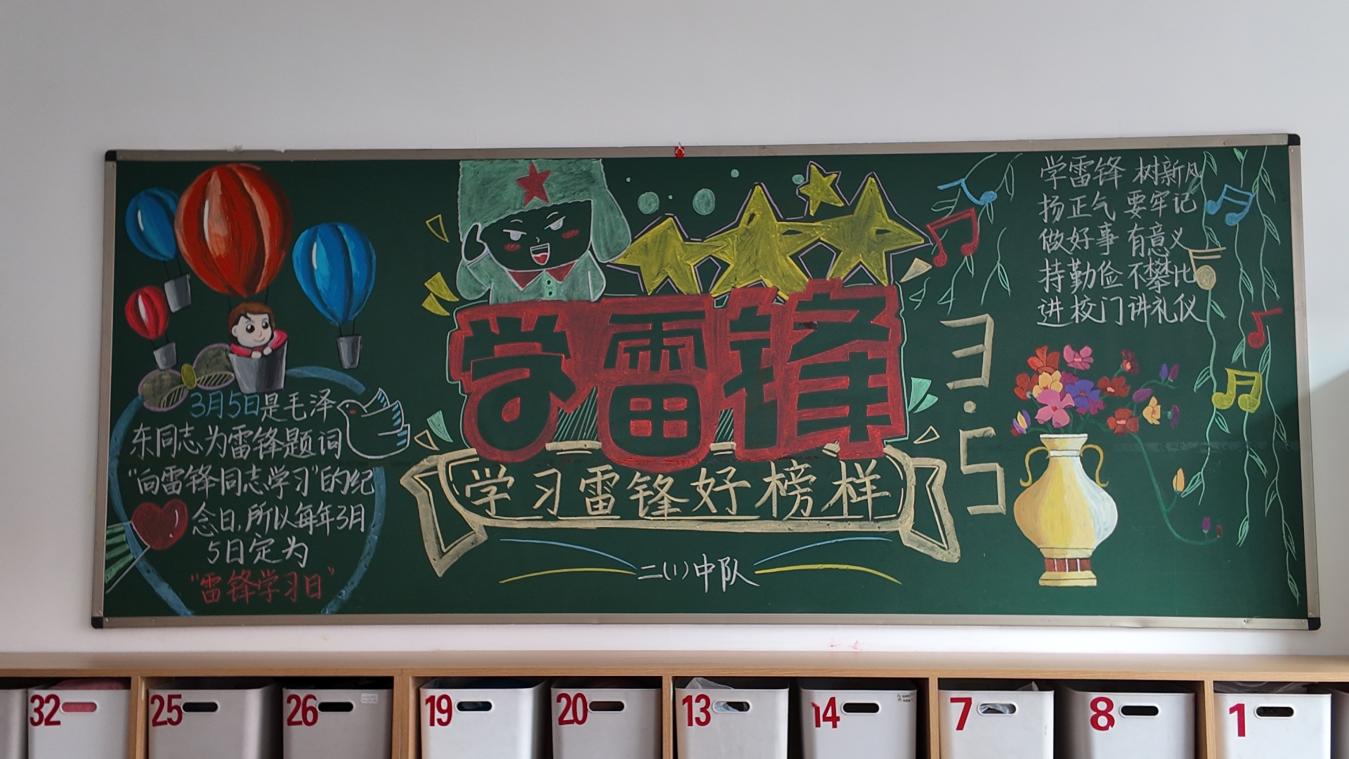 3月5日是毛泽
东同志为雷锋题词
“向雷锋同志学习”的纪
念日,所以每年3月
5日定为
“雷锋学习日”
学雷锋
学习雷锋好榜样
二(1)中队
3.5
学雷锋 树新风
扬正气 要牢记
做好事 有意义
持勤俭 不攀比
进校门 讲礼仪
32
25
26
19
20
13
14
7
8
1